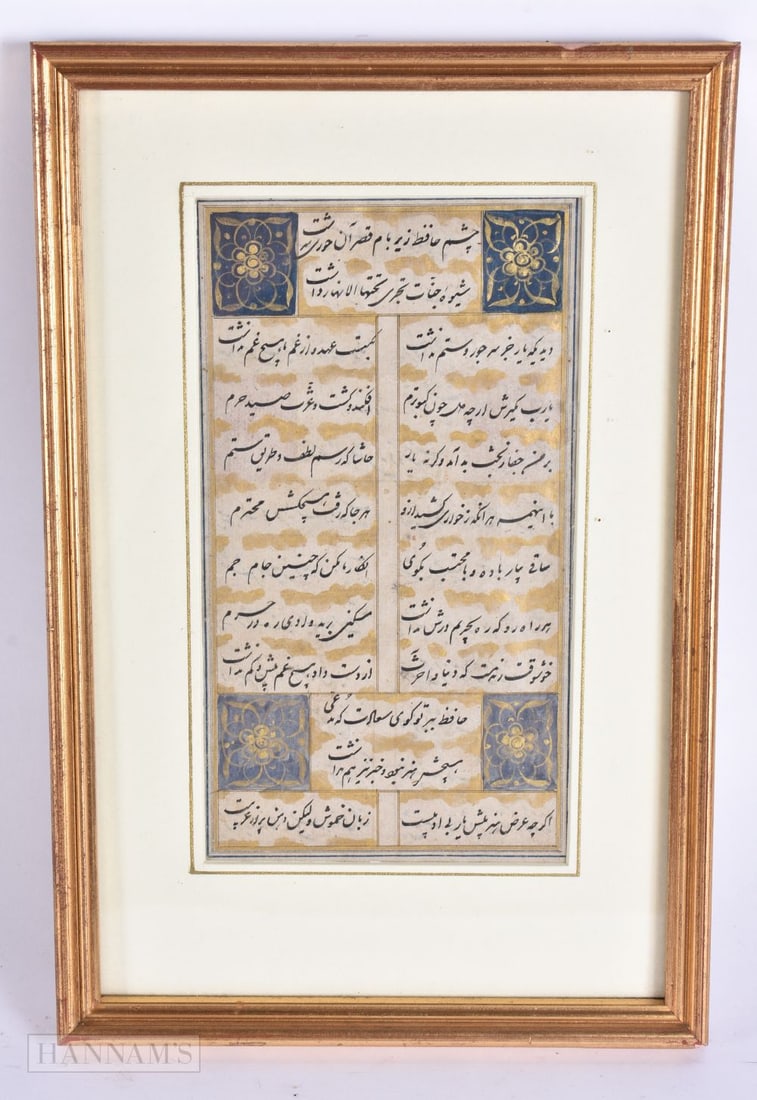 چشم حافظ زیر بام قصر آن حوری سرشت
شیوهٔ جنات تجری تحتها الانهار داشت
دیدیکه یار جز سر جور و ستم نداشت بشکست عهد و از غم ما هیچ غم نداشت
یارب مگیرش ارچه دل چون کبوترم افکند و کشت و عزت صید حرم
بر من جفا ز بخت بد آمد وگرنه یار حاشا که رسم لطف و طریق ستم
با اینهمه هر آنکه نه خواری کشید ازو هر جا که رفت هیچکسش محترم
ساقی بیار باده و با محتسب بگوی انکار ما مکن که چنین جام جم
هر راه رو که ره بحریم درش نداشت مسکین برید وادی و ره در حرم
خوشوقت رند مست که دنیا و آخرت از دست داد و هیچ غم بیش و کم نداشت
حافظ ببر تو گوی سعادت که مدعی
هیچش هنر نبود و خبر نیز هم نداشت
اگرچه عرض هنر پیش یار بی ادبیست زبان خموش ولیکن دهن پر از عربیست
HANNAM'S